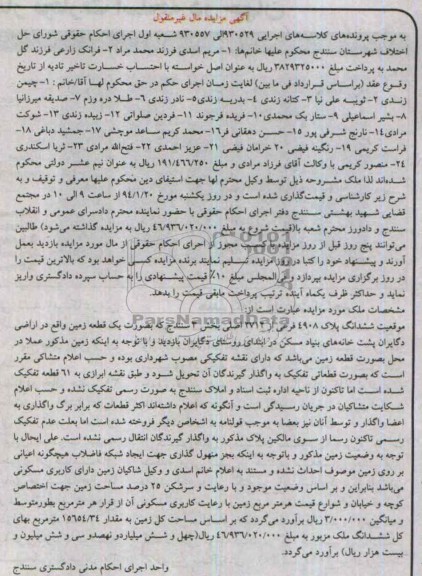 آگهی مزایده مال غیرمنقول
به موجب پرونده‌های کلاسه‌های اجرایی ۹۳۰۵۲۹الی ۹۳۰۵۵۷ شعبه اول اجرای احکام حقوقی شورای حل
اختلاف شهرستان سنندج محکوم علیها خانم‌ها: ۱- مریم اسدی فرزند محمد مراد ۲- فرانک زارعی فرزند گل
محمد به پرداخت مبلغ ۳۸۲۹۳۲۵۰۰۰ ریال به عنوان اصل خواسته با احتساب خسارت تاخیر تادیه از تاریخ
وقوع عقد (براساس قرارداد فی ما بین) لغایت زمان اجرای حکم در حق محکوم لهما آقا/خانم : ۱- چیمن
زندی ۲- ثویبه علی نیا ۳- کتانه زندی ۴- بدریه زندی۵- نادر زندی ۶- طلا دره وزم ۷- صدیقه میرزانیا
۸- بشیر اسماعیلی ۹- ستار بک محمدی۱۰- فریده فرجوند ۱۱- فردین صلواتی ۱۲- زبیده زندی ۱۳- شوکت
مرادی۱۴- نارنج شرفی پور ۱۵- حسن دهقانی فر۱۶- محمد کریم ساعد موچشی ۱۷- جمشید دباغی ۱۸-
فراست کریمی ۱۹- رنگینه فیضی ۲۰ خرامان فیضی ۲۱- عزیز احمدی ۲۲- فتح‌الله مرادی ۲۳- ثریا اسکندری
۲۴- منصور کریمی با وکالت آقای فرزاد مرادی و مبلغ ۱۹۱/۴۶۶/۲۵۰ ریال به عنوان نیم عشر دولتی محکوم
شده‌اند لذا ملک مشروحه ذیل توسط وکیل محترم لها جهت استیفای دین محکوم علیها معرفی و توقیف و به
شرح زیر کارشناسی و قیمت‌گذاری شده است و در روز یکشنبه مورخ ۹۴/۱/۲۰ از ساعت ۹ الی ۱۰ در مجتمع
قضایی شهید بهشتی سنندج دفتر اجرای احکام حقوقی با حضور نماینده محترم دادسرای عمومی و انقلاب
سنندج و دادورز محترم شعبه با(قیمت شروع به مبلغ ۴۶/۹۳۶/۰۲۰/۰۰۰ ریال به مزایده گذاشته می‌شود) طالبین
می‌توانند پنج روز قبل از روز مزایده با کسب مجوز از اجرای احکام حقوقی از مال مورد مزایده بازدید بعمل
آورند و پیشنهاد خود را کتبا در روز مزایده تسلیم نمایند برنده مزایده کسی خواهد بود که بالاترین قیمت را
در روز برگزاری مزایده بپردازد و فی‌المجلس مبلغ ۱۰٪ قیمت پیشنهادی را به حساب سپرده دادگستری واریز
نماید و حداکثر ظرف یکماه آینده ترتیب پرداخت مابقی قیمت را بدهد.
مشخصات ملک مورد مزایده عبارت است از:
موقعیت ششدانگ پلاک ۴۹۰۸ فرعی از ۲۷۱۲ اصلی بخش ۲ سنندج که بصورت یک قطعه زمین واقع در اراضی
دگایران پشت خانه‌های بنیاد مسکن در ابتدای روستای دگایران بازدید و با توجه به اینکه زمین مذکور عملا در
محل بصورت قطعه زمین می‌باشد که دارای نقشه تفکیکی مصوب شهرداری بوده و حسب اعلام متشاکی مقرر
است که بصورت قطعاتی تفکیک به واگذار گیرندگان آن تحویل شود و طبق نقشه ابرازی به ۶۱ قطعه تفکیک
شده است اما تاکنون از ناحیه اداره ثبت اسناد و املاک سنندج به صورت رسمی تفکیک نشده و حسب اعلام
شکایت متشاکیان در جریان رسیدگی است و آنگونه که اعلام داشته‌اند اکثر قطعات که برابر برگ واگذاری به
اعضا واگذار و توسط آنان نیز بعضا به موجب قولنامه به اشخاص دیگر فروخته شده است اما بعلت عدم تفکیک
رسمی تاکنون رسما از سوی مالکین پلاک مذکور به واگذار گیرندگان انتقال رسمی نشده است. علی ایحال با
توجه به وضعیت زمین مذکور و باتوجه به اینکه بجز منهول گذاری جهت ایجاد شبکه فاضلاب هیچگونه اعیانی
بر روی زمین موصوف احداث نشده و مستند به اعلام خانم اسدی و وکیل شاکیان زمین دارای کاربری مسکونی
می‌باشد بنابراین و بر اساس وضعیت موجود و با رعایت و سرشکن ۲۵ درصد مساحت زمین جهت اختصاص
کوچه و خیابان و شوارع قیمت هرمتر مربع زمین با رعایت کاربری مسکونی آن از قرار هر مترمربع بطورمتوسط
و میانگین ۳/۰۰۰/۰۰۰ ریال برآورد می‌گردد که بر اساس مساحت کل زمین به مقدار ۱۵۶۵۴/۳۴ مترمربع بهای
کل ششدانگ ملک مزبور به مبلغ ۴۶/۹۳۶/۰۲۰/۰۰۰ ریال(چهل و شش میلیاردو نهصدو سی و شش میلیون و
بیست هزار ریال) برآورد می‌گردد.
واحد اجرای احکام مدنی دادگستری سنندج